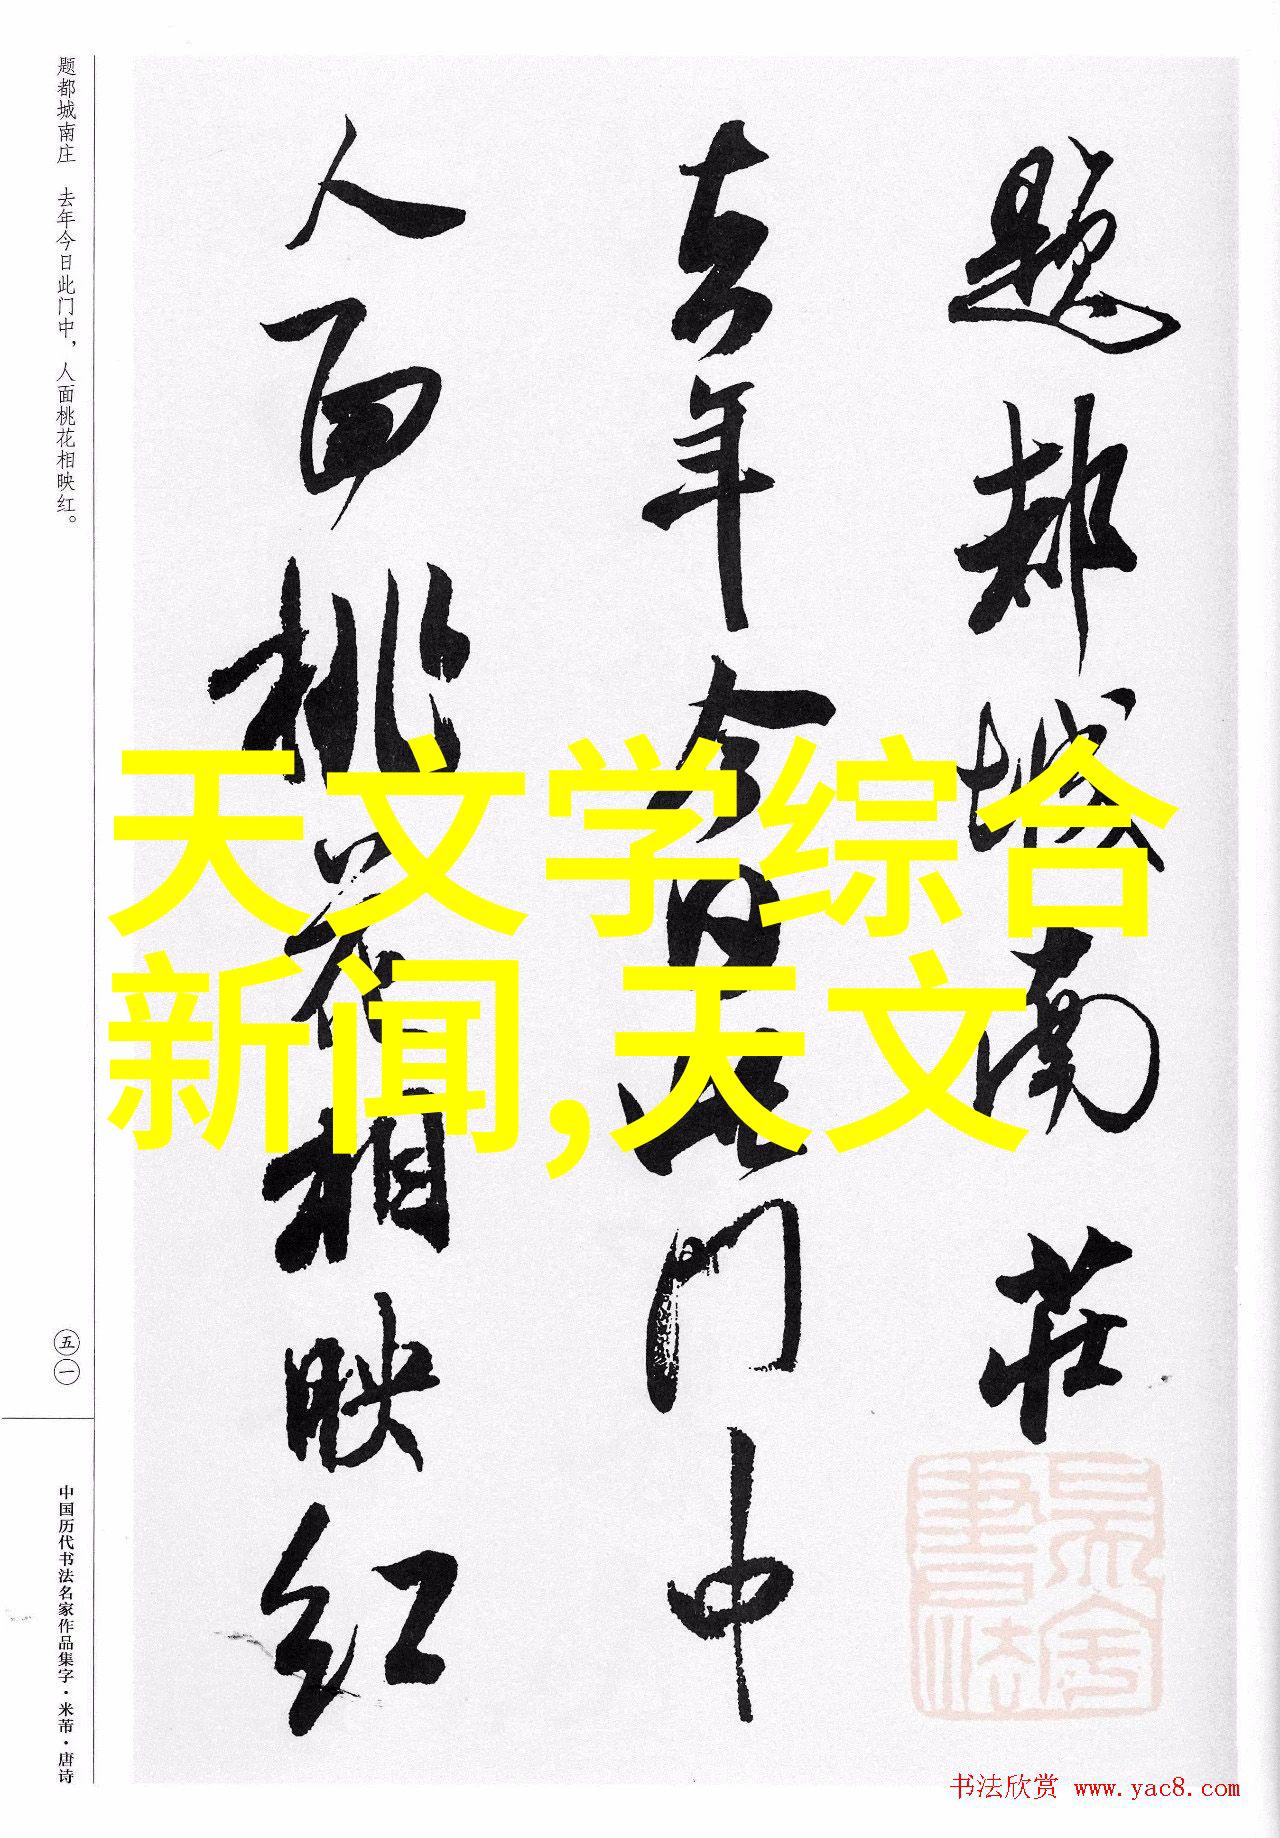 题都城南莊
去年今日此门中
人面桃花相映红
天文学综合
新闻,天文
题都城南庄 去年今日此门中，人面桃花相映红。
五一
中国历代书法名家作品集字·米芾·唐诗
书法欣赏 www.yac8.com